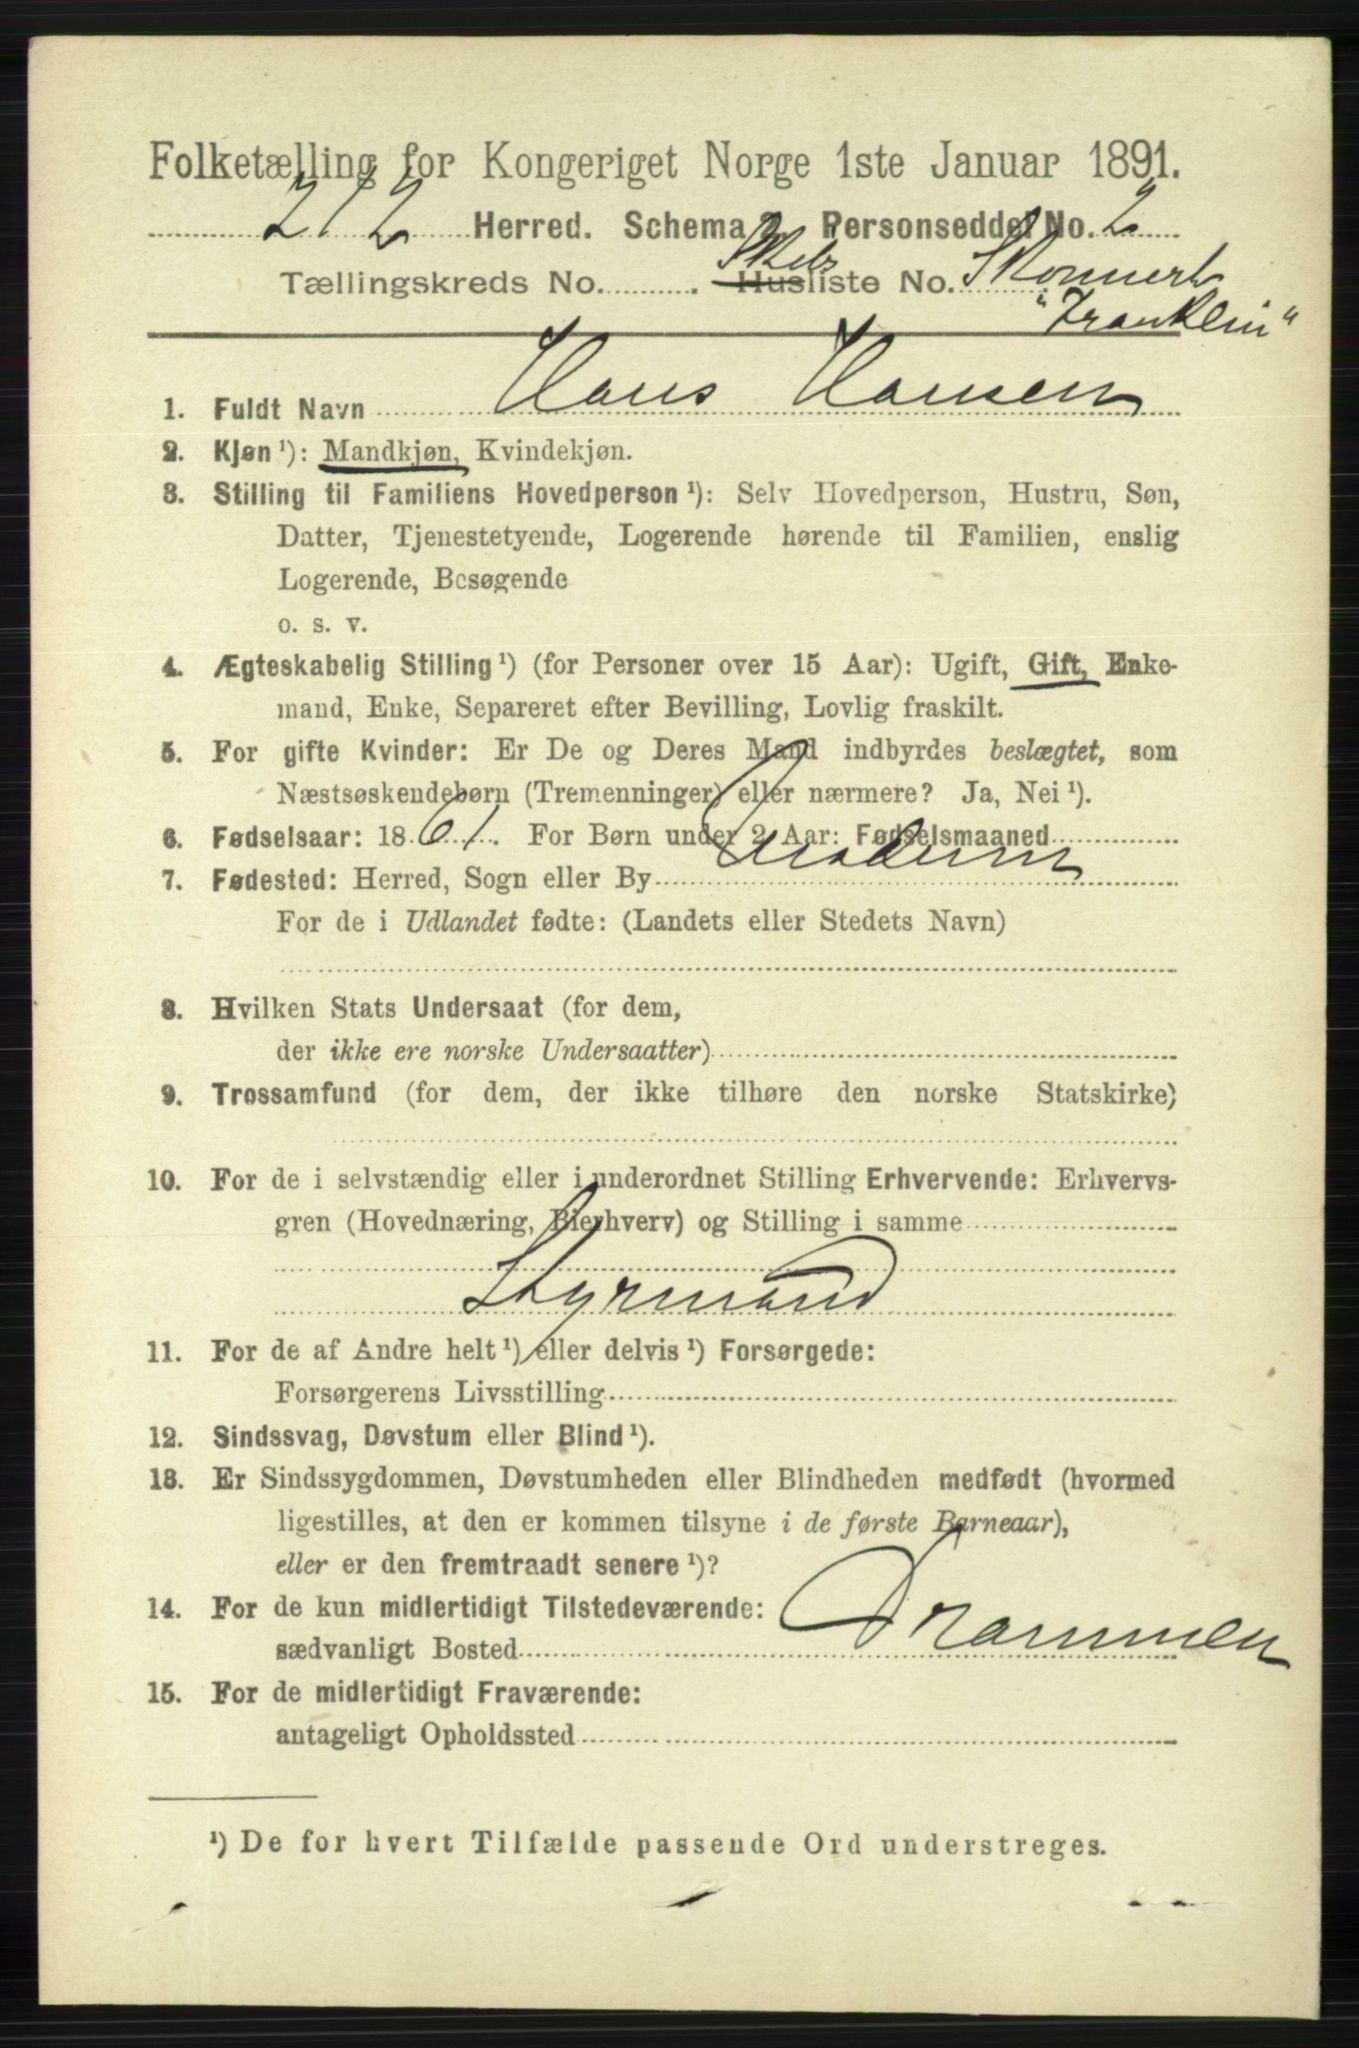 Folketælling for Kongeriget Norge 1ste Januar 1891.
212 Herred. Schema 2. Personseddel No. 2
Tællingskreds No. . Skibsliste No. Skonnert
"Franklin"
1. Fuldt Navn Hans Hansen
2. Kjøn ¹): Mandkjøn, Kvindekjøn.
3. Stilling til Familiens Hovedperson ¹): Selv Hovedperson, Hustru, Søn,
Datter, Tjenestetyende, Logerende hørende til Familien, enslig
Logerende, Besøgende
o. s. v.
4. Ægteskabelig Stilling ¹) (for Personer over 15 Aar): Ugift, Gift, Enke-
mand, Enke, Separeret efter Bevilling, Lovlig fraskilt.
5. For gifte Kvinder: Er De og Deres Mand indbyrdes beslægtet, som
Næstsøskendebørn (Tremenninger) eller nærmere? Ja, Nei ¹).
6. Fødselsaar: 1861. For Børn under 2 Aar: Fødselsmaaned
7. Fødested: Herred, Sogn eller By
For de i Udlandet fødte: (Landets eller Stedets Navn)
8. Hvilken Stats Undersaat (for dem,
der ikke ere norske Undersaatter)
9. Trossamfund (for dem, der ikke tilhøre den norske Statskirke)
10. For de i selvstændig eller i underordnet Stilling Erhvervende: Erhvervs-
gren (Hovednæring, Bierhverv) og Stilling i samme
Styrmand
11. For de af Andre helt ¹) eller delvis ¹) Forsørgede:
Forsørgerens Livsstilling
12. Sindssvag, Døvstum eller Blind ¹).
13. Er Sindssygdommen, Døvstumheden eller Blindheden medfødt (hvormed
ligestilles, at den er kommen tilsyne i de første Barneaar),
eller er den fremtraadt senere ¹)?
14. For de kun midlertidigt Tilstedeværende:
sædvanligt Bosted Drammen
15. For de midlertidigt Fraværende:
antageligt Opholdssted
¹) De for hvert Tilfælde passende Ord understreges.